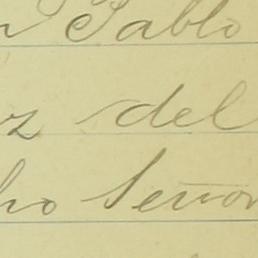 n Pablo
z del
ho Señor